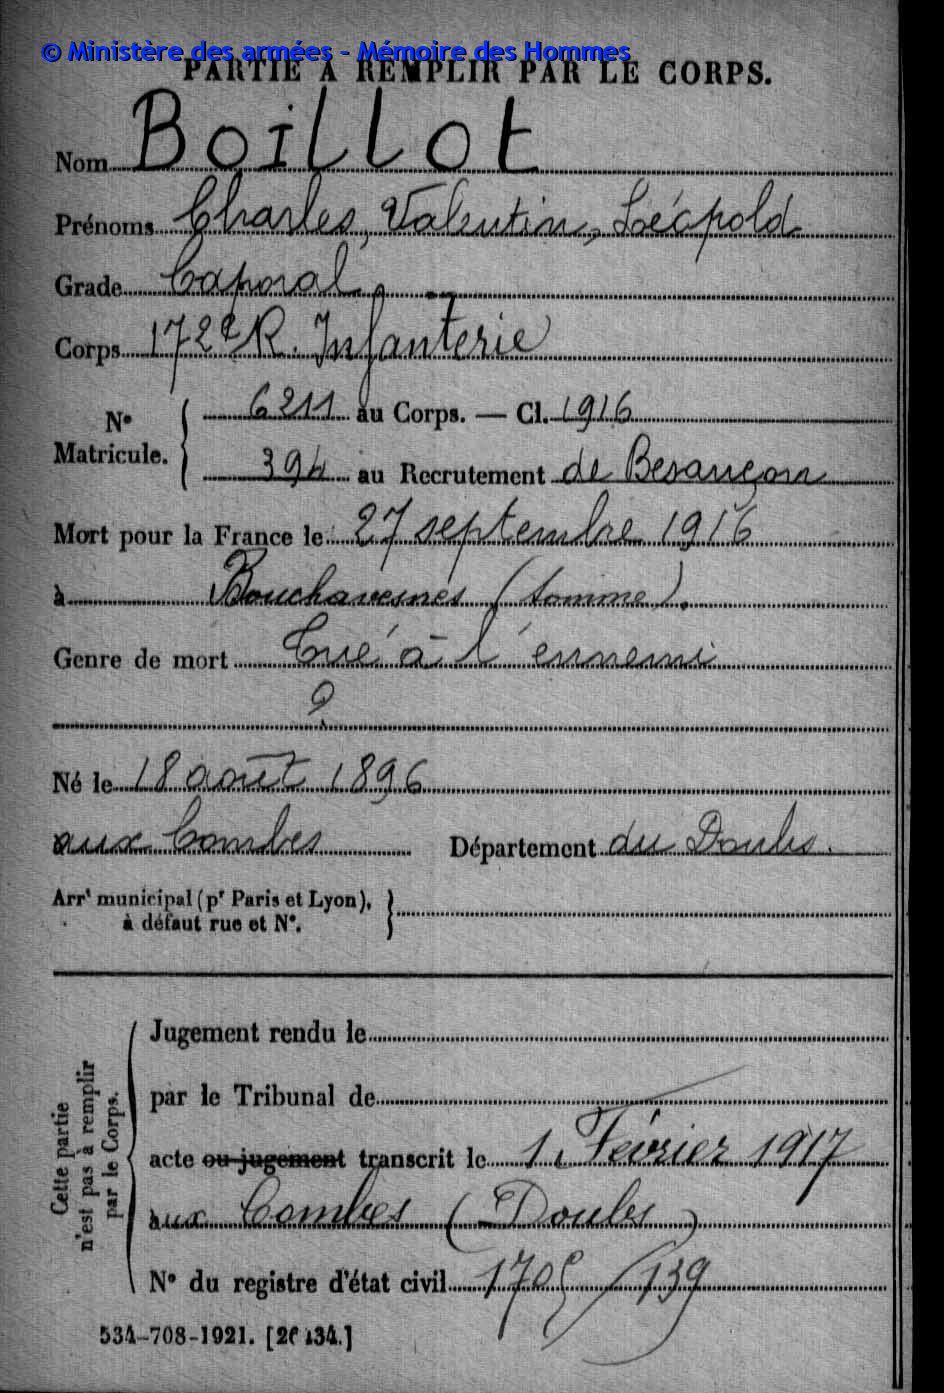 © Ministère des armées - Mémoire des Hommes
PARTIE À REMPLIR PAR LE CORPS.
Nom Boillot
Prénoms Charles, Valentin, Léopold
Grade Caporal
Corps 172e R. Infanterie
N° Matricule. 6211 au Corps. — Cl. 1916
394 au Recrutement de Besançon
Mort pour la France le 27 septembre 1916
à Bouchavesnes (Somme).
Genre de mort Tué à l'ennemi
Né le 18 août 1896
aux Combes Département du Doubs.
Arrt municipal (pr Paris et Lyon),
à défaut rue et N°.
Cette partie
n'est pas à remplir
par le Corps.
Jugement rendu le
par le Tribunal de
acte ou jugement transcrit le 1 Février 1917
aux Combes (Doubs)
N° du registre d'état civil
534-708-1921.